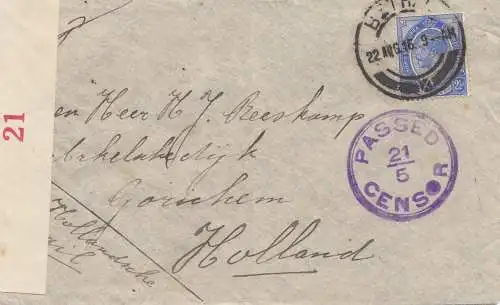 22 AUG.16. 9 - AM
21
en Heer H J Reeskamp
PASSED
21
5
CENSOR
Gorichem
Holland
Hollandsche